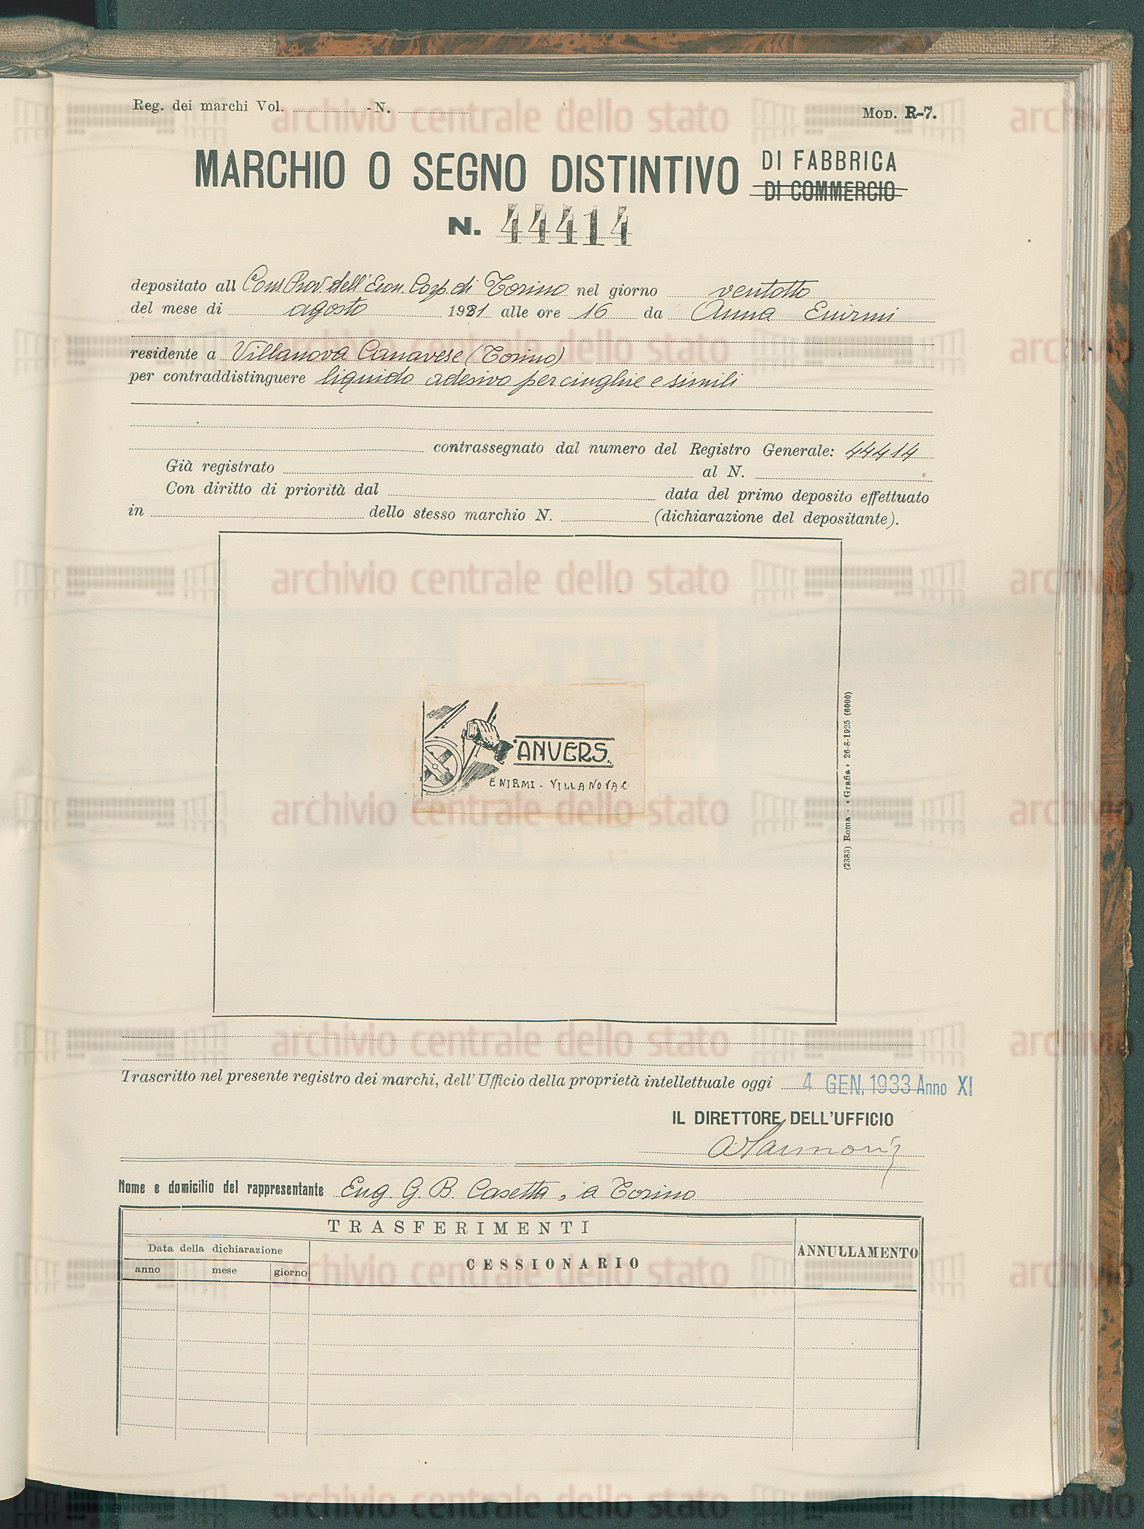 Reg. dei marchi Vol. - N. Mod. R-7.
MARCHIO O SEGNO DISTINTIVO DI FABBRICA
DI COMMERCIO
N. 44414
depositato all Cons Prov dell'Econ. Corp. di Torino nel giorno ventotto
del mese di agosto 1931 alle ore 16 da Anna Enirmi
residente a Villanova Canavese (Torino)
per contraddistinguere liquido adesivo per cinghie e simili
contrassegnato dal numero del Registro Generale: 44414
Già registrato al N.
Con diritto di priorità dal data del primo deposito effettuato
in dello stesso marchio N. (dichiarazione del depositante).
ANVERS.
ENIRMI - VILLANOVA C
(2383) Roma - «Grafia» 26-8-1925 (6000)
Trascritto nel presente registro dei marchi, dell'Ufficio della proprietà intellettuale oggi 4 GEN. 1933 Anno XI
IL DIRETTORE DELL'UFFICIO
Nome e domicilio del rappresentante Eug. G. B. Casetta, a Torino
TRASFERIMENTI
Data della dichiarazione
CESSIONARIO
ANNULLAMENTO
anno mese giorno
archivio centrale dello stato